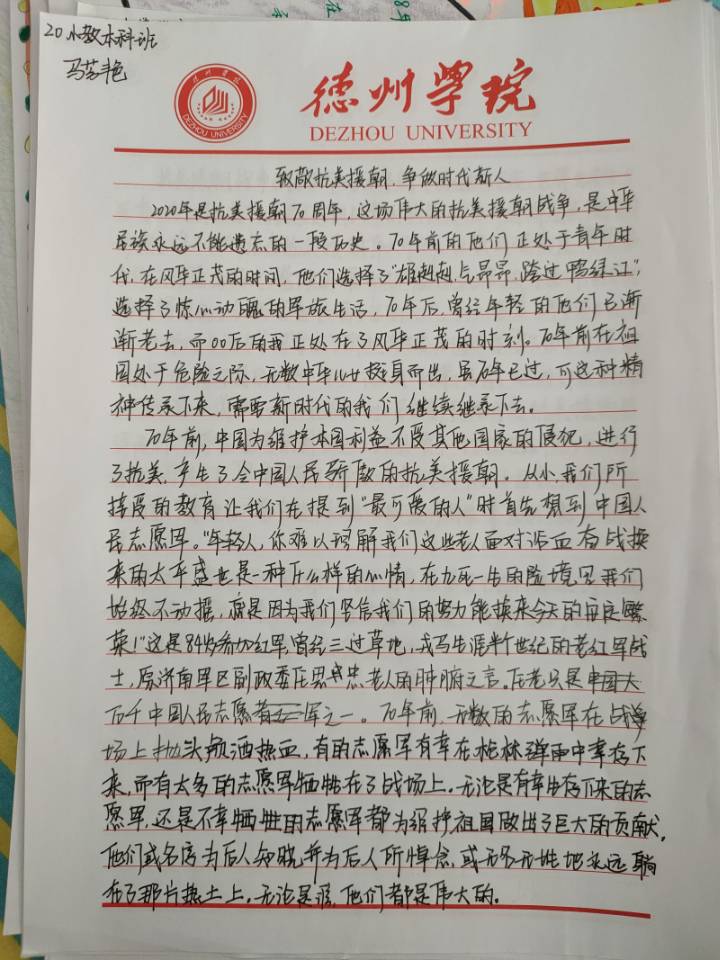 20小教本科班
马艺艳
德州学院
DEZHOU UNIVERSITY
德州学院
DEZHOU UNIVERSITY
致敬抗美援朝,争做时代新人
2020年是抗美援朝70周年,这场伟大的抗美援朝战争,是中华
民族永远不能遗忘的一段历史。70年前的他们正处于青年时
代,在风华正茂的时间,他们选择了“雄赳赳,气昂昂,跨过鸭绿江”,
选择了惊心动魄的军旅生活,70年后,曾经年轻的他们已渐
渐老去,而00后的我正处在了风华正茂的时刻。70年前在祖
国处于危险之际,无数中华儿女挺身而出,虽70年已过,可这种精
神传承下来,需要新时代的我们继续继承下去。
70年前,中国为维护本国利益不受其他国家的侵犯,进行
了抗美,产生了令中国人民骄傲的抗美援朝。从小,我们所
接受的教育让我们在提到“最可爱的人”时首先想到中国人
民志愿军。“年轻人,你难以理解我们这些老人面对流血奋战换
来的太平盛世是一种什么样的心情,在九死一生的险境里我们
始终不动摇,就是因为我们坚信我们的努力能换来今天的安定繁
荣!”这是84岁参加红军,曾经三过草地,戎马生涯半个世纪的老红军战
士,原济南军区副政委庄忠老人的肺腑之言。庄老只是中国大
万千中国人民志愿军之一。70年前,无数的志愿军在战争
场上抛头颅洒热血,有的志愿军有幸在枪林弹雨中幸存下
来,而有太多的志愿军牺牲在了战场上。无论是有幸生存下来的志
愿军,还是不幸牺牲的志愿军都为维护祖国做出了巨大的贡献,
他们或名字为后人知晓并为后人所悼念,或无名无姓地永远躺
在了那片热土上。无论是谁,他们都是伟大的。